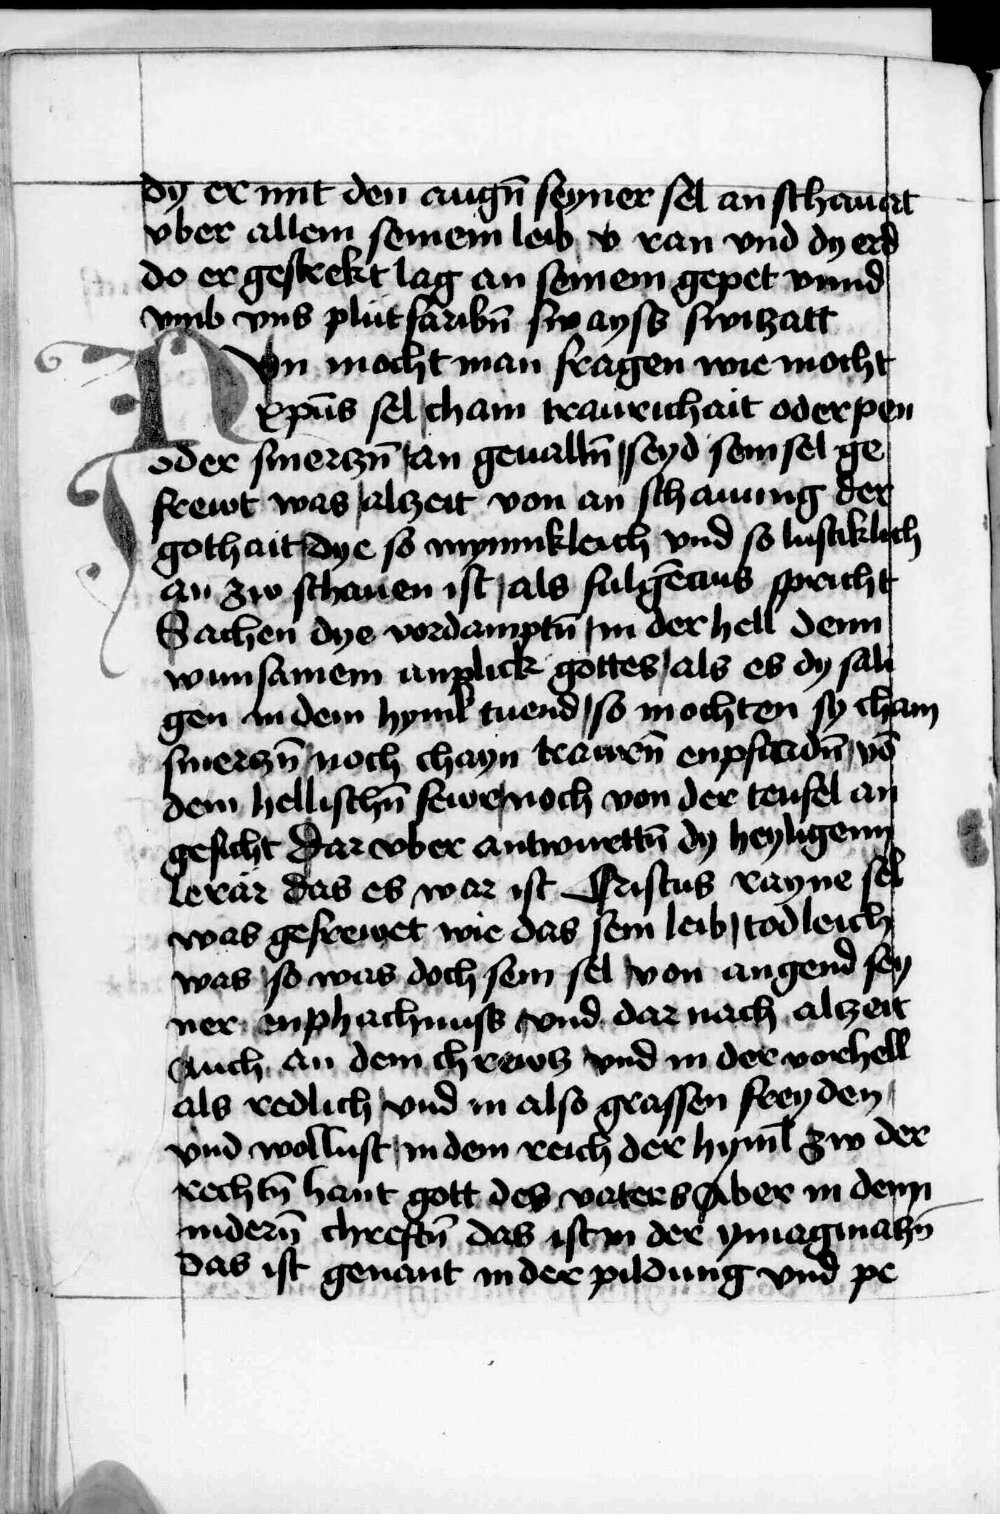 dy er mit den augn̄ seyner sel an schauat
vber allem seinem leib v̈ ran vnd dy erd
do er gestrekt lag an seinem gepet vnnd
vmb vns plut faribn̄ swayss switzatt
Nvn mocht man fragen wie mocht
xp̄us sel cham traurichait oder pen
oder smerczn̄ an geualln̄ seyd sein sel ge
frewt was alzeit von an schauung der
gothait dye so mynnikleich vnd so lustiklich
an zw schauen ist / als fulgēcius spricht
Sachen dye vordamptn̄ in der hell denn
wunsamem anplick gottes / als es dy sali
gen in dem hyml tuend / so mochten sy cham
smerczn̄ noch chayn trawrn̄ enpfindn̄ vō
dem hellischn̄ fewr / noch von der teufel an
gesicht Dar vber antwurttn̄ dy heyligenn
lerär das es war ist Cristus rayne sel
was gefrewet wie das sein leib / todleich
was / so was doch sein sel / von angend sey
ner enphachnuss vnd dar nach alzeit
Auch an dem chrewtz vnd in der vorhell
als redlich / vnd in also grassen freyden /
vnd wollust / in dem reich der hyml̄ zw der
rechtn̄ hant gott des vaters Aber in denn
nidern̄ chreftn̄ das ist in der ymaginatzn̄
das ist genant in der pildung vnd pe